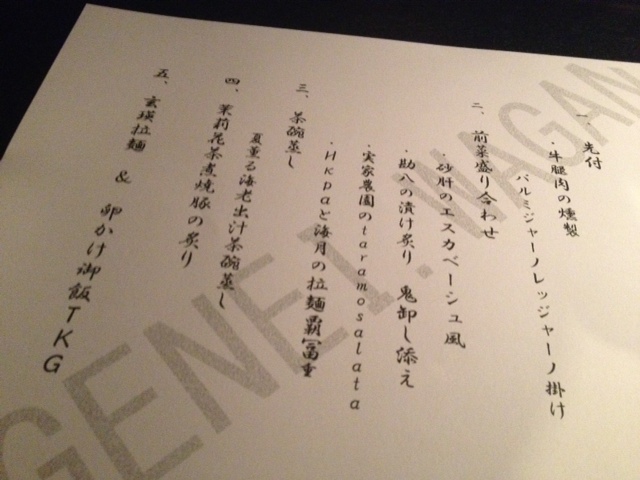 一、先付
・牛腿肉の燻製
パルミジャーノレッジャーノ掛け
二、前菜盛り合わせ
砂肝のエスカベーシュ風
・助八の漬け炙り 鬼卸し添え
・実家農園のtaramosalata
・Икраと海月の拉麺覇冨重
三、茶碗蒸し
夏薫る海老出汁茶碗蒸し
四、茉莉花茶煮焼豚の炙り
五、玄瑛拉麺 & 卵かけ御飯TKG
GENEI.WAGAN